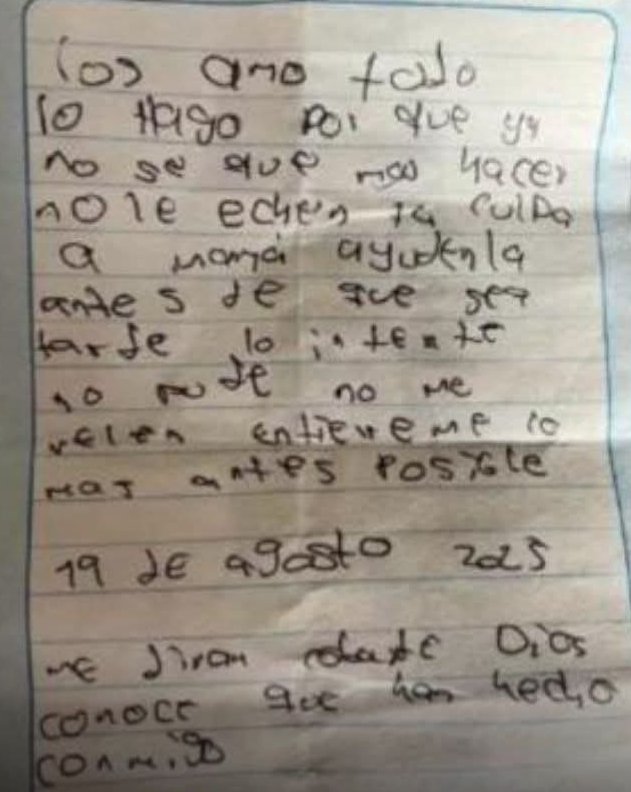 los amo todo
lo Hago por que ya
no se que mas hacer
no le echen la culpa
a mamá ayudenla
antes de que sea
tarde lo intente
no pude no me
velen entierreme lo
mas antes Posible
19 de agosto 2025
me diran cobarde Dios
conoce que han hecho
conmigo